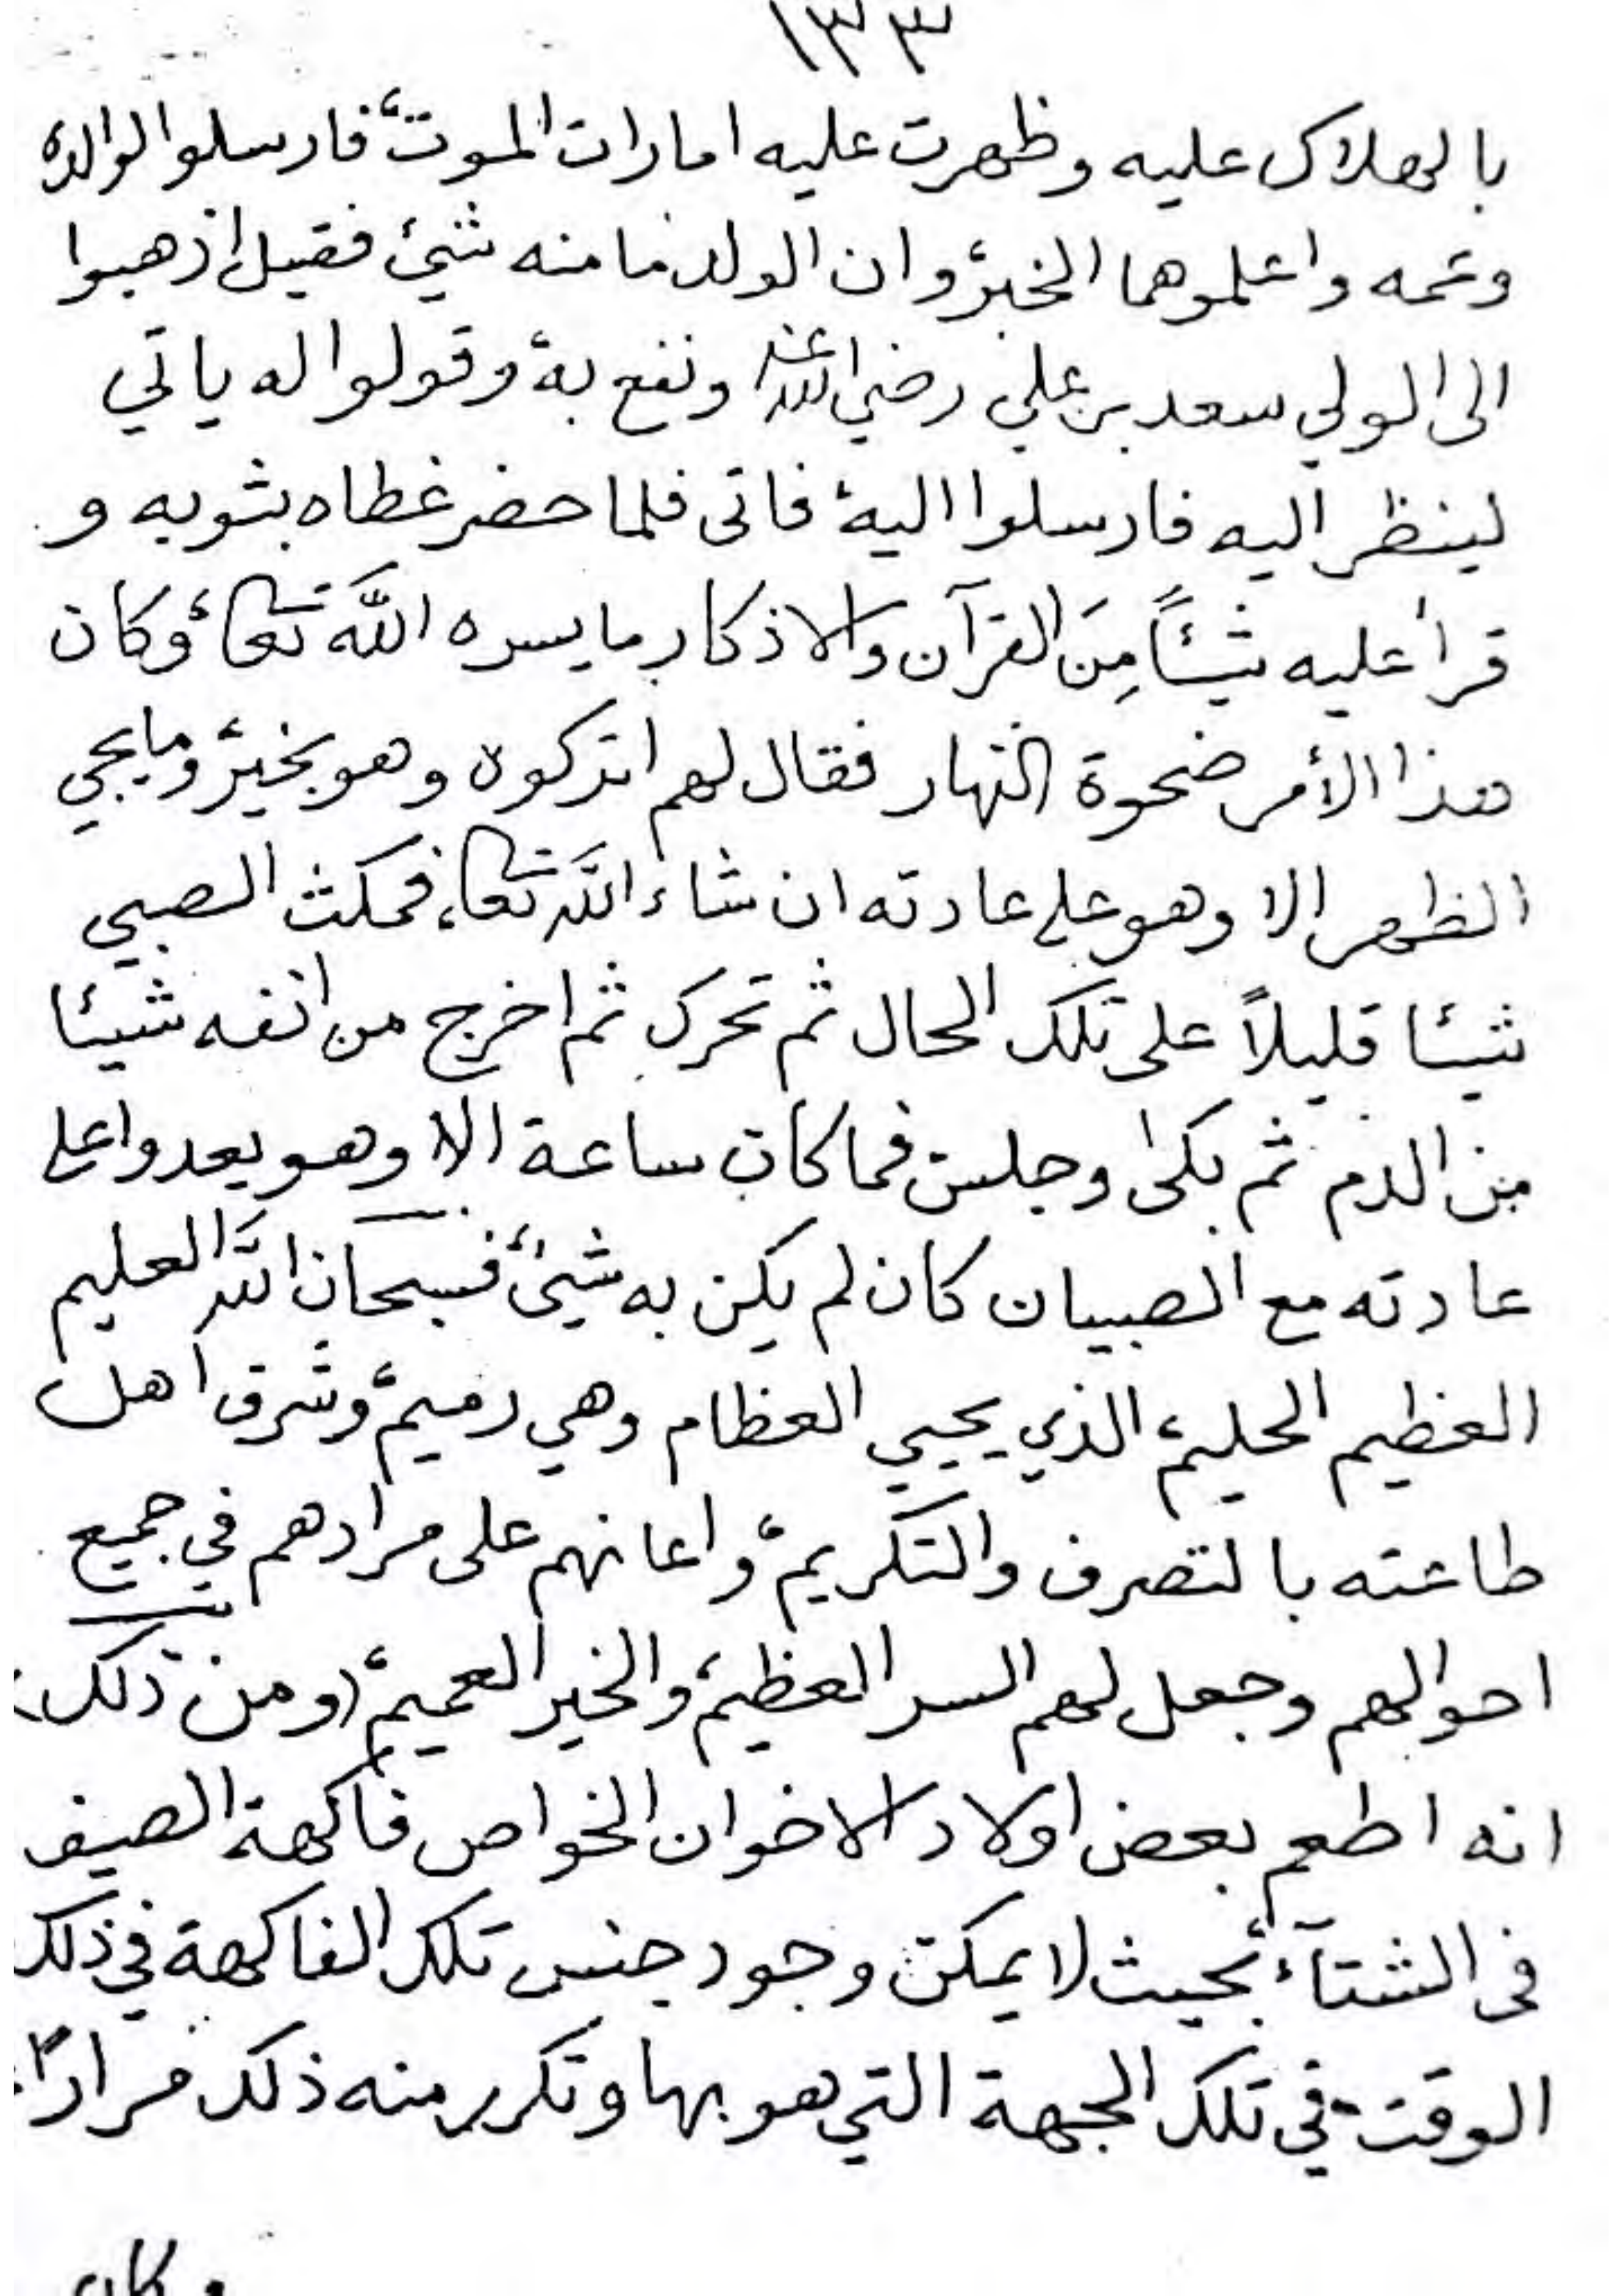 ١٣٣
بالهلاك عليه وظهرت عليه امارات الموت، فارسلوا لوالده
وعمه واعلموهما الخبر، وان الولد ما منه شيئ فقيل اذهبوا
الى الولي سعد بن علي رضي الله عنه ونفع به، وقولوا له ياتي
لينظر اليه فارسلوا اليه، فاتى فلما حضر غطاه بثوبه و
قرأ عليه شيئاً مِنَ القرآن والاذكار بما يسره اللَّه تعالى، وكان
هذا الأمر ضحوة النهار فقال لهم اتركوه وهو بخير، وما يجي
الظهر الا وهو على عادته ان شاء اللَّه تعالى، فمكث الصبي
شيئا قليلاً على تلك الحال ثم تحرك ثم اخرج من انفه شيئا
من الدم ثم بكى وجلس فما كان ساعة الا وهو يعدوا على
عادته مع الصبيان كان لم يكن به شيئ، فسبحان اللَّه العليم
العظيم الحليم، الذي يحيي العظام وهي رميم، وشرف اهل
طاعته بالتصرف والتكريم، واعانهم على مرادهم في جميع
احوالهم وجعل لهم السر العظيم، والخير العميم، (ومن ذلك)
انه اطعم بعض اولاد الاخوان الخواص فاكهة الصيف
فى الشتآء، بحيث لا يمكن وجود جنس تلك الفاكهة في ذلك
الوقت في تلك الجهة التي هو بها وتكرر منه ذلك مراراً،
وكان